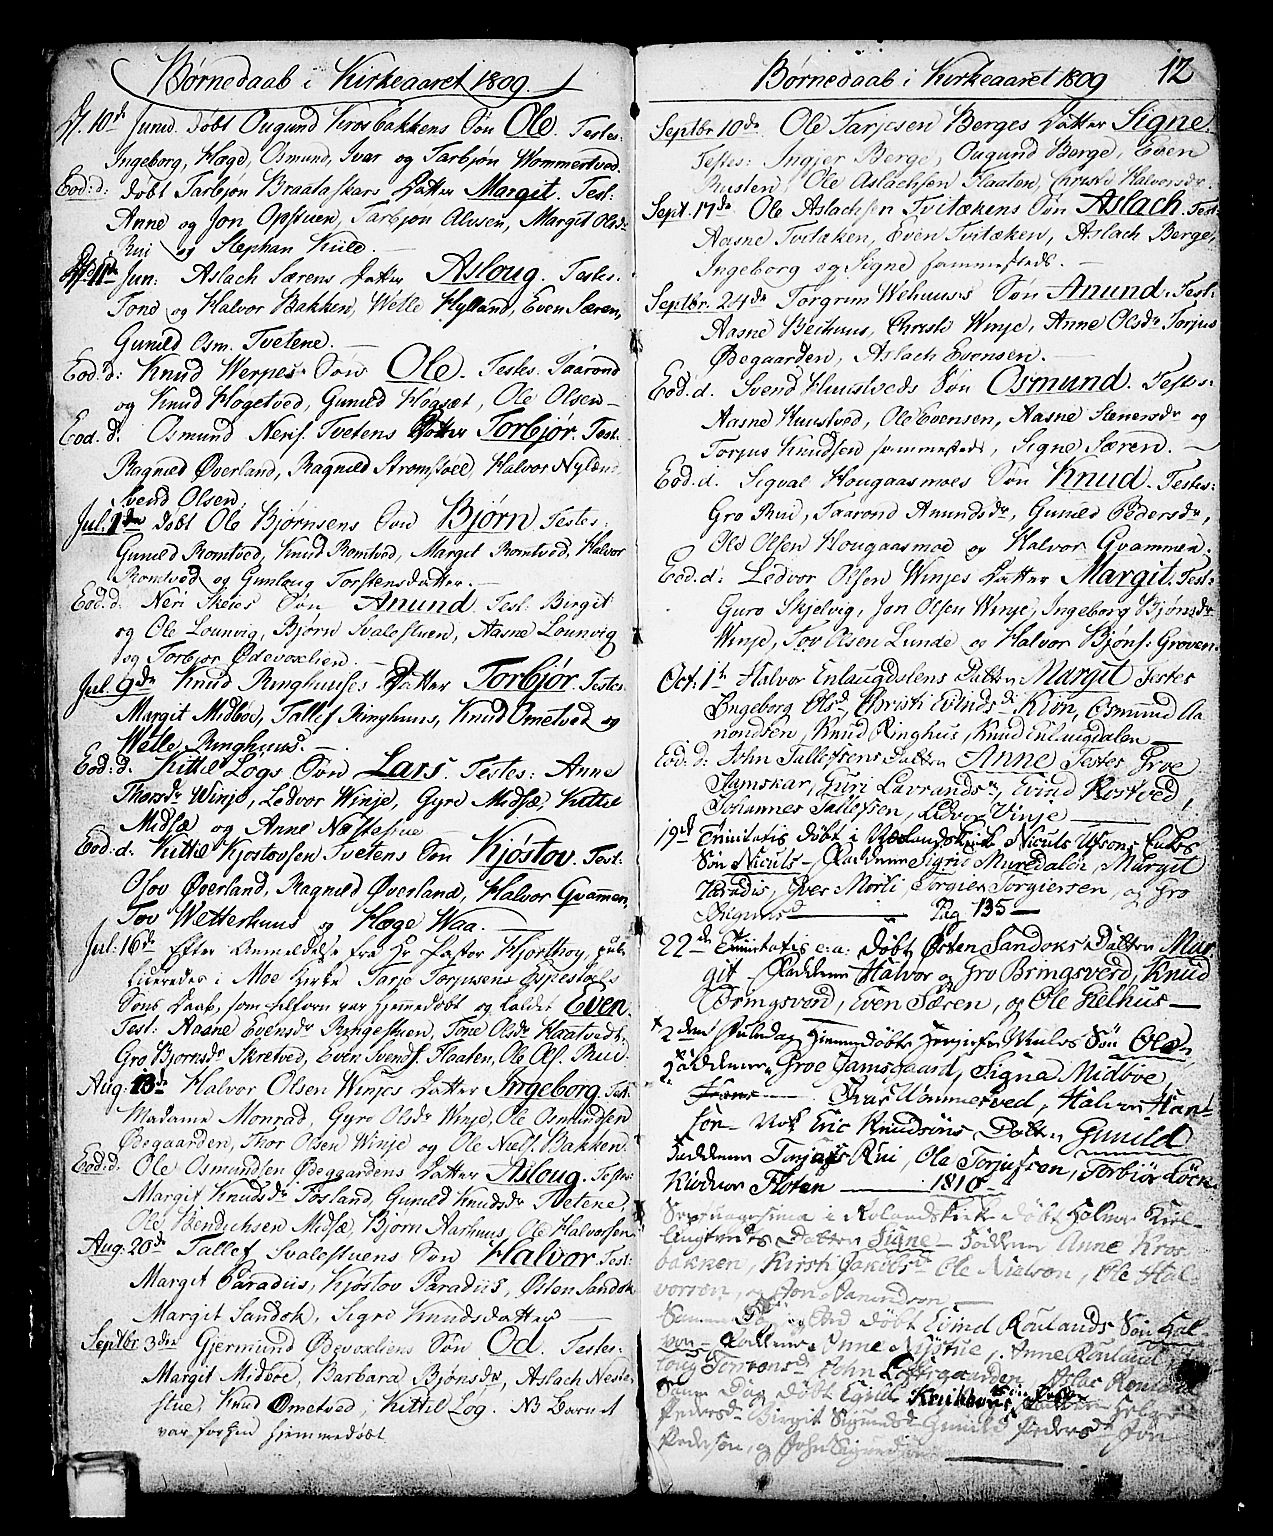 Børnedaab i Kirkeaaret 1809
D. 10de Junii døbt Ougund Krosbakkens Søn Ole. Testes:
Ingeborg, Hæge, Osmund, Ivar og Tarbjøn Wommertved.
Eod: d: døbt Tarbjøn Braataskars Datter Margit. Test:
Anne og Jon Opstuen, Tarbjøn Alvsen, Margit Olsdr
Rui og Stephan Kiile.
11te Jun: Aslach Særens Datter Asloug. Testes:
Tone og Halvor Bakken, Wetle Hylland, Even Særen,
Gunild Osm. Tvetene.
Eod: d: Knud Werpes Søn Ole. Testes. Taarond
og Knud Høgetved, Gunild Høgset, Ole Olsen
Eod. d. Osmund Neris. Tvetens Datter Torbjør. Test:
Ragnild Øverland, Ragnild Strømstoel, Halvor Nylænd
Svend Olsen.
Jul. 1de døbt Ole Bjørnsens Søn Bjørn Testes:
Gunild Romtved, Knud Romtved, Margit Romtved, Halvor
Romtved og Gunloug Torstensdatter.
Eod: d: Neri Skeies Søn Anund. Test: Birgit
og Ole Lounvig, Bjørn Svalestuen, Aasne Lounvig
og Torbjør Ødevoxlien.
Jul. 9de Knud Ringhuuses Datter Torbjør. Testes:
Margit Midbøe, Tallef Ringhuus, Knud Ometved og
Wetle Ringhuus.
Eod: d: Kittil Logs Søn Lars. Testes: Anne
Thorsdr Winje, Ledvor Winje, Gyro Midsæ, Kittil
Midsæ og Anne Næstestue
Eod: d: Kittil Kjøstovsen Tvetens Søn Kjøstov. Test:
Osov Øverland, Ragnild Øverland, Halvor Gvamen,
Tov Wetterhuus og Hæge Waa.
Jul: 16de Efter Anmeldelse fra Hr. Pastor Hjorthoy, pub-
liceredes i Moe Kirke Tarje Torjusens Espestøels
Søns Daab, som tilforn var hjemmedøbt og kaldet Even.
Test: Aasne Evensdr Ringestuen, Tone Olsdr Haatvedt,
Gro Bjørnsdr Skretved, Even Svends. Flaaten, Ole Ols. Rui
Aug: 13de Halvor Olsen Winjes Datter Ingeborg. Test:
Madame Monrad, Gyro Olsdr Winje, Ole Osmundsen
Ødegaarden, Thor Olsen Winje og Ole Niels. Bakken.
Eod: d. Ole Osmundsen Ødegaardens Datter Asloug. Testes:
Margit Knudsdr Fosland, Gunild Knudsdr Tvetene,
Ole Bendichsen Midsæ, Bjørn Aarhuus, Ole Halvorsen
Aug: 20de Tallef Svalestuens Søn Halvor. Test:
Margit Paradiis, Kjøstov Paradiis, Østen Sandok
Margit Sandok, Sigre Knudsdatter
Septbr 3die Gjermund Ødevoxliens Søn Od. Testes:
Margit Midbøe, Barbara Bjønsdr, Aslach Neste
stue, Knud Ometved, Kittil Log. NB Barnet
var forhen hjemmedøbt.
Børnedaab i Kirkeaaret 1809 12
Septbr 10de Ole Tarjesen Berges Datter Signe.
Testes: Ingjer Berge, Ougund Berge, Even
Rusten, Ole Aslachsen Flaaten, Christi Halvorsdr.
Sept. 17de Ole Aslachsen Tvitækens Søn Aslach. Test:
Aasne Tvitæken, Even Tvitæken, Aslach Berge,
Ingeborg og Signe sammesteds.
Septbr. 24de Torgrim Wehuuses Søn Anund. Test:
Aasne Beihuus, Christi Winje, Anne Olsdr Torjus
Ødegaarden, Aslach Evensen.
Eod. d. Svend Huustveds Søn Osmund. Testes:
Aasne Huustved, Ole Evensen, Aasne Steenersdr og
Torjus Knudsen sammesteds, Signe Særen.
Eod: d. Sigval Hougaasmoes Søn Knud. Testes:
Gro Rui, Taarond Anundsdr, Gunild Pedersdr,
Ole Olsen Hougaasmoe og Halvor Gvammen.
Eod: d: Ledvor Olsen Winjes Datter Margit. Test:
Guro Skjelvig, Jon Olsen Winje, Ingeborg Bjønsdr
Winje, Tov Olsen Lunde og Halvor Bjøns: Groven
Oct: 1te Halvor Enlaugdalens Datter Margit Testes
Ingeborg Olsd. Christi Evindsd: Kiøn, Osmund Aa-
nondsen, Knud Ringhus, Knud Enlaugdalen
Eod: d: John Tallefsens Datter Anne Testes Groe
Jamskar, Guri Lavrandsdr, Evind Rostved,
Johannes Tallefsen, Ledvor Vinje
19de Trinitatis døbt i Kirke Niculs Ufsons Huses
Søn Niculs Faddere Sigrie Muredalen, Margit
Paradis, Iver Morli, Torgier Torgiersen, og Gro
Sigurdsd Pag 135
22de Trinitatis e: a: døbt Østen Sandoks Datter Mar
git Faddere Halvor og Gro Bringsverd, Knud
Bringsverd, Even Særen, og Ole Gielhus
2den Juledag hiemmedøbte Søn Ole
Faddere Groe Jamsgaard, Signe Midbøe
Ivar Wommerved, Halvor Han-
sen Nok Eric Knudsøns Datter Gunild
Faddere Torjus Rui, Ole Torjusson, Torbiør Løen
Floten 1810
Septuagesima i Kirke døbt Halvor
Datter Signe Faddere Anne Kros
bakken, Kirsti Jakobsdr Ole Nielson, Ole Hal-
vorson, og Jon Aanundson
Samme Dag og Sted døbt Eivind Roulands Søn Hal-
vor Faddere Anne , Anne Rouland
John , Aslac Rouland
Samme Dag døbt Datter Helge
Pedersdr Birgit Sigurdsd Gunild Pedersdr Jon
Pederson, og John Sigurdson